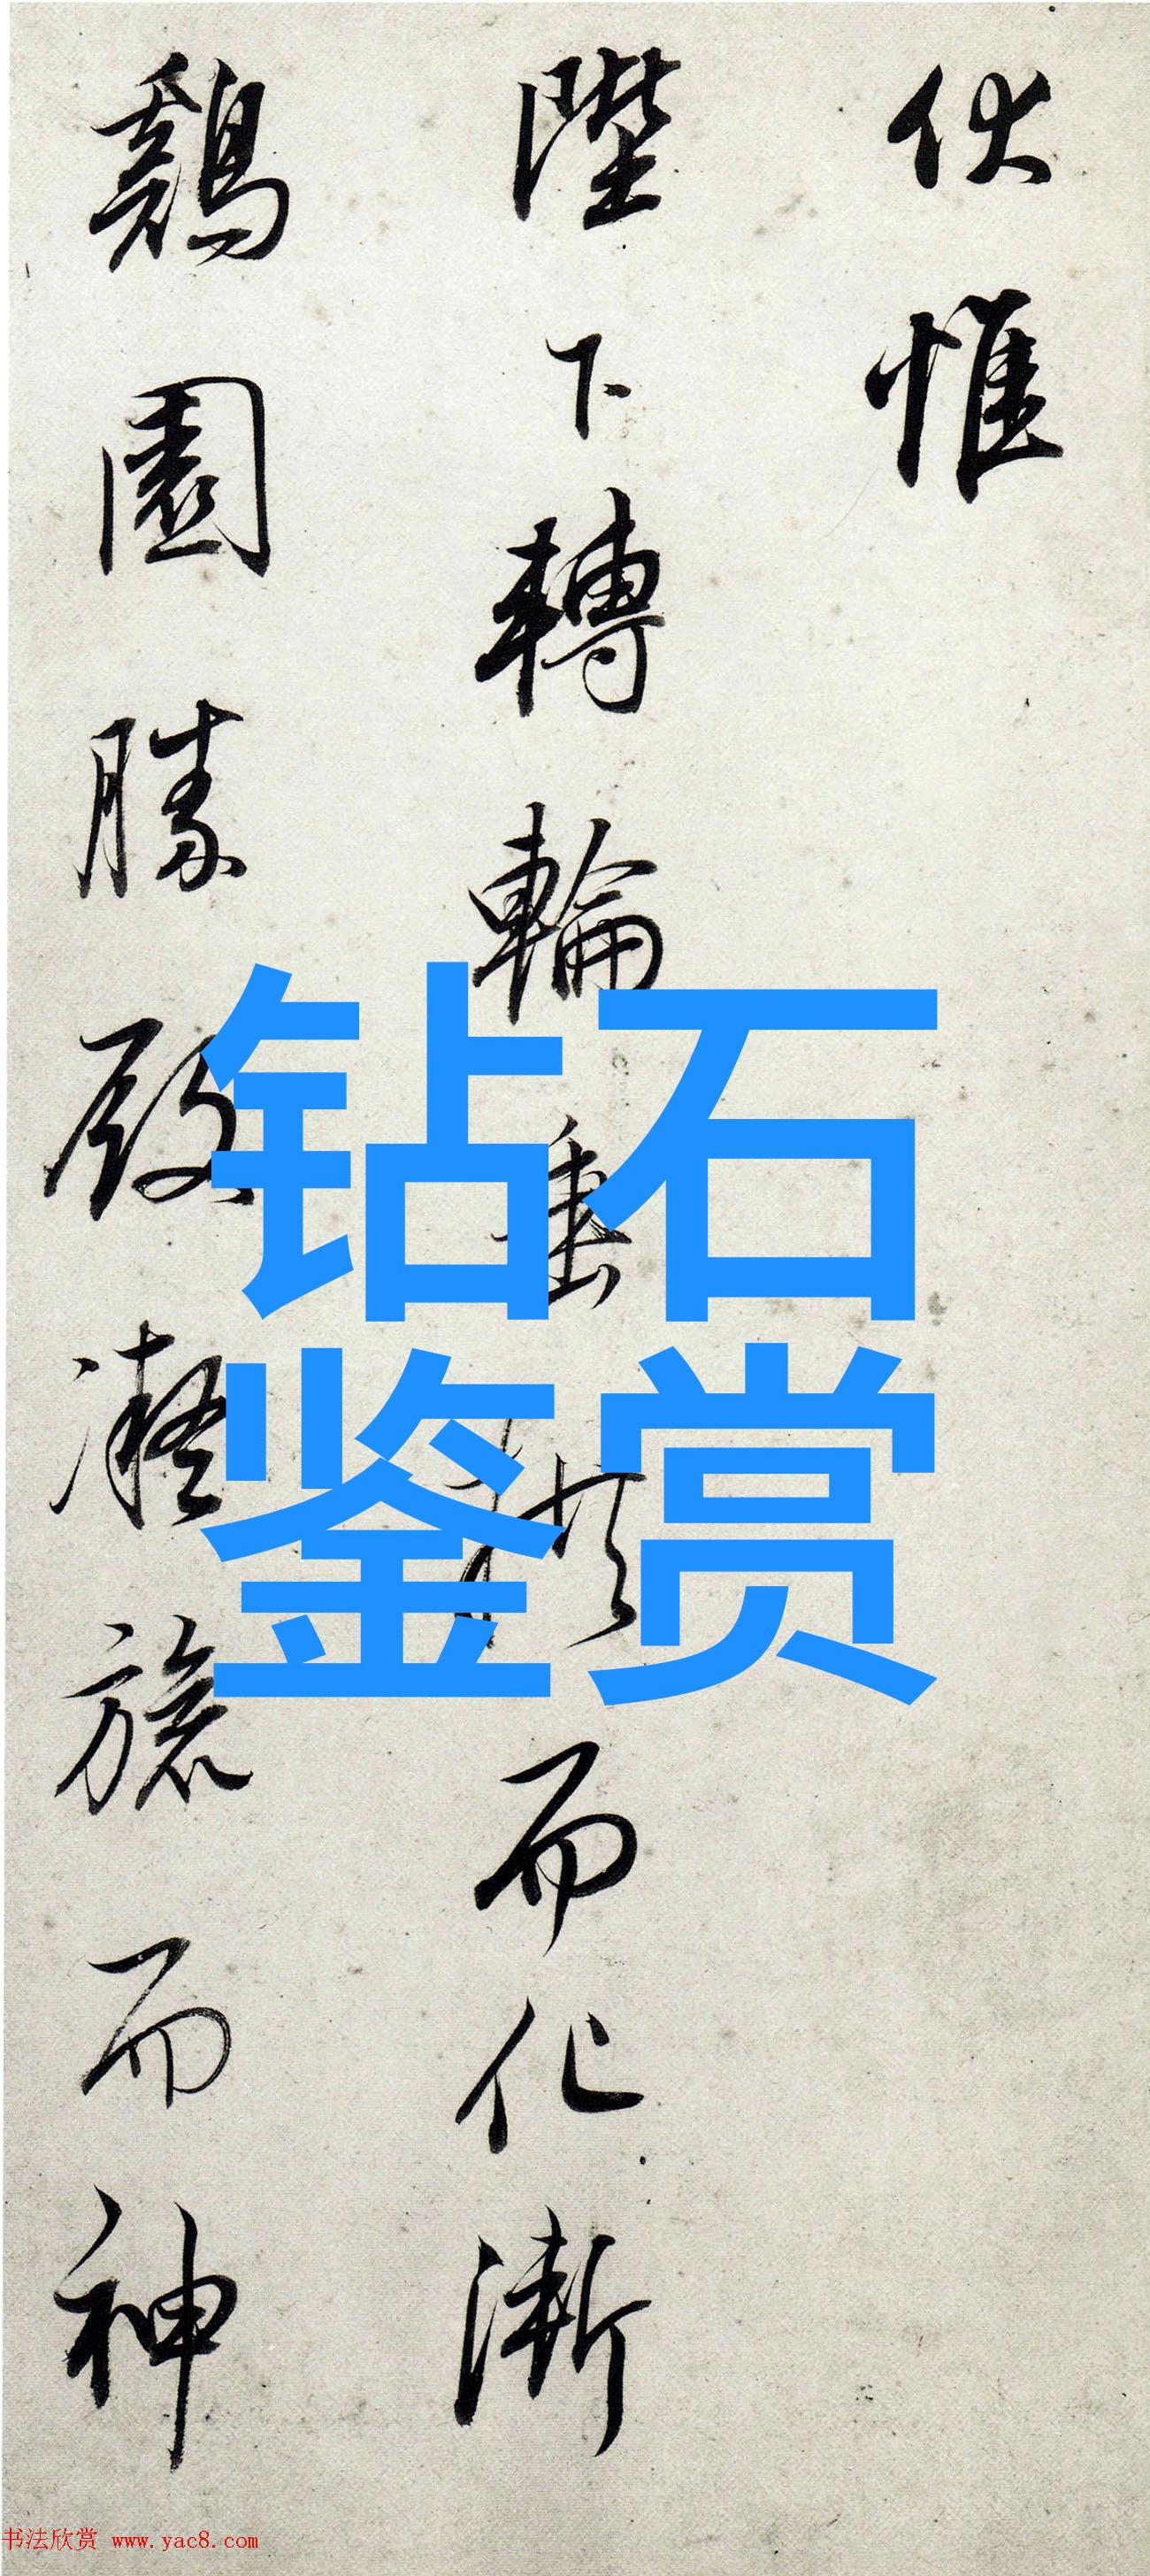 伏惟
陛下轉輪垂拱而化漸
鷄園勝殿凝旒而神
钻石
鉴赏
书法欣赏 www.yac8.com